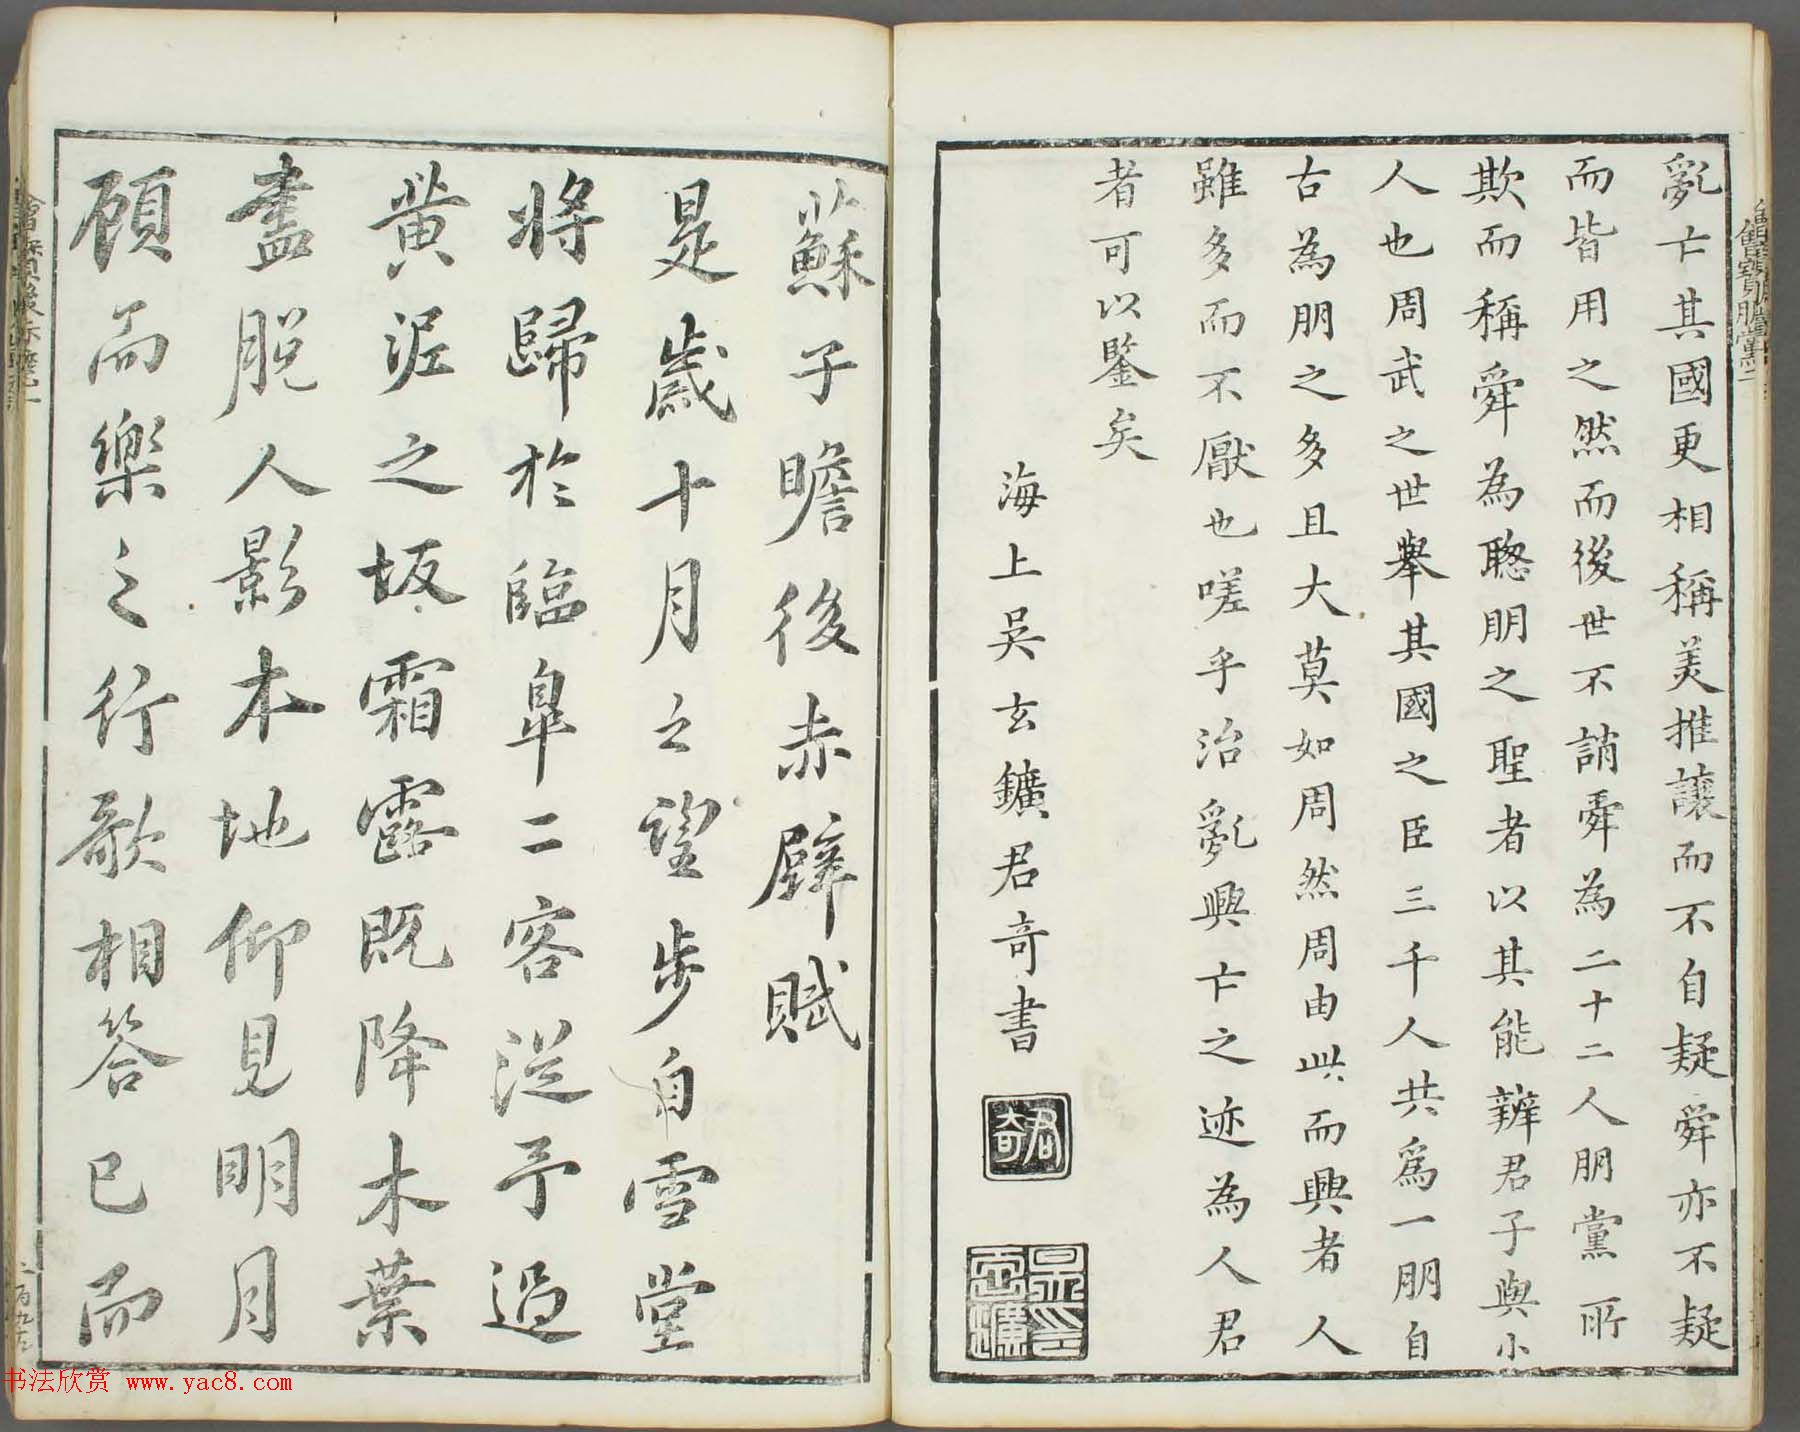 亂亡其國更相稱美推讓而不自疑舜亦不疑
而皆用之然而後世不誚舜為二十二人朋黨所
欺而稱舜為聦明之聖者以其能辨君子與小
人也周武之世舉其國之臣三千人共為一朋自
古為朋之多且大莫如周然周由此而興者人
雖多而不厭也嗟乎治亂興亡之迹為人君
者可以鑒矣
海上吳玄鑛君奇書
君奇
蘇子瞻後赤壁賦
是歲十月之望步自雪堂
將歸於臨皐二客從予過
黄泥之坂霜露既降木葉
盡脫人影木地仰見明月
顧而樂之行歌相答已而
书法欣赏 www.yac8.com